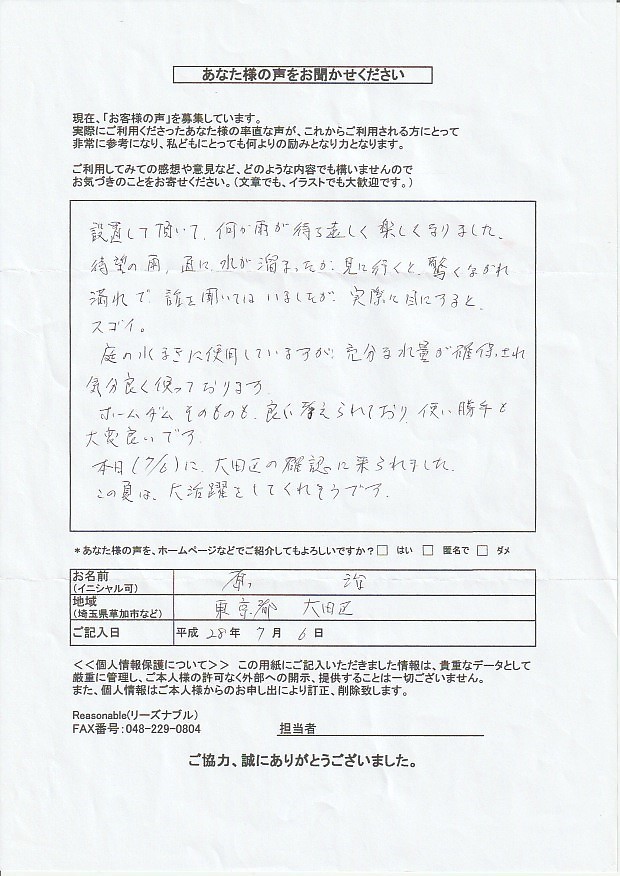 あなた様の声をお聞かせください
現在、「お客様の声」を募集しています。
実際にご利用くださったあなた様の率直な声が、これからご利用される方にとって
非常に参考になり、私どもにとっても何よりの励みとなり力となります。
ご利用してみての感想や意見など、どのような内容でも構いませんので
お気づきのことをお寄せください。（文章でも、イラストでも大歓迎です。）
設置して頂いて、何か雨が待ち遠しく楽しくなりました。
待望の雨、直に水が溜まったか見に行くと、驚くなかれ
満水で、話を聞いてはいましたが、実際に目にすると、
スゴイ。
庭の水まきに使用していますが、充分な水量が確保され
気分良く使っております。
ホームダムそのものも、良く考えられており、使い勝手も
大変良いです。
本日（7/6）に、大田区の確認に来られました。
この夏は、大活躍をしてくれそうです。
＊あなた様の声を、ホームページなどでご紹介してもよろしいですか？□ はい □ 匿名で □ ダメ
お名前
（イニシャル可） 原 治
地域
（埼玉県草加市など） 東京都 大田区
ご記入日 平成 28年 7月 6日
＜＜個人情報保護について＞＞ この用紙にご記入いただきました情報は、貴重なデータとして
厳重に管理し、ご本人様の許可なく外部への開示、提供することは一切ございません。
また、個人情報はご本人様からのお申し出により訂正、削除致します。
Reasonable(リーズナブル)
FAX番号：048-229-0804 担当者
ご協力、誠にありがとうございました。